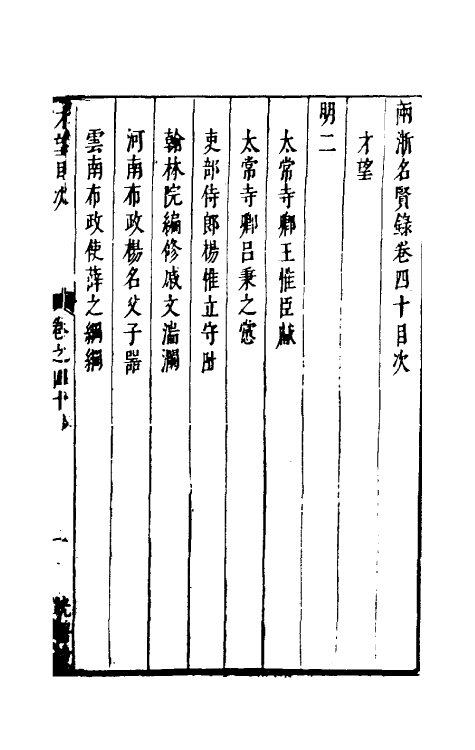 兩浙名賢錄卷四十目次
才望
明二
太常寺卿王惟臣獻
太常寺卿呂秉之㦂
吏部侍郎楊惟立守阯
翰林院編修戚文湍瀾
河南布政楊名父子器
雲南布政使薛之綱綱
才望目次
卷之四十
一